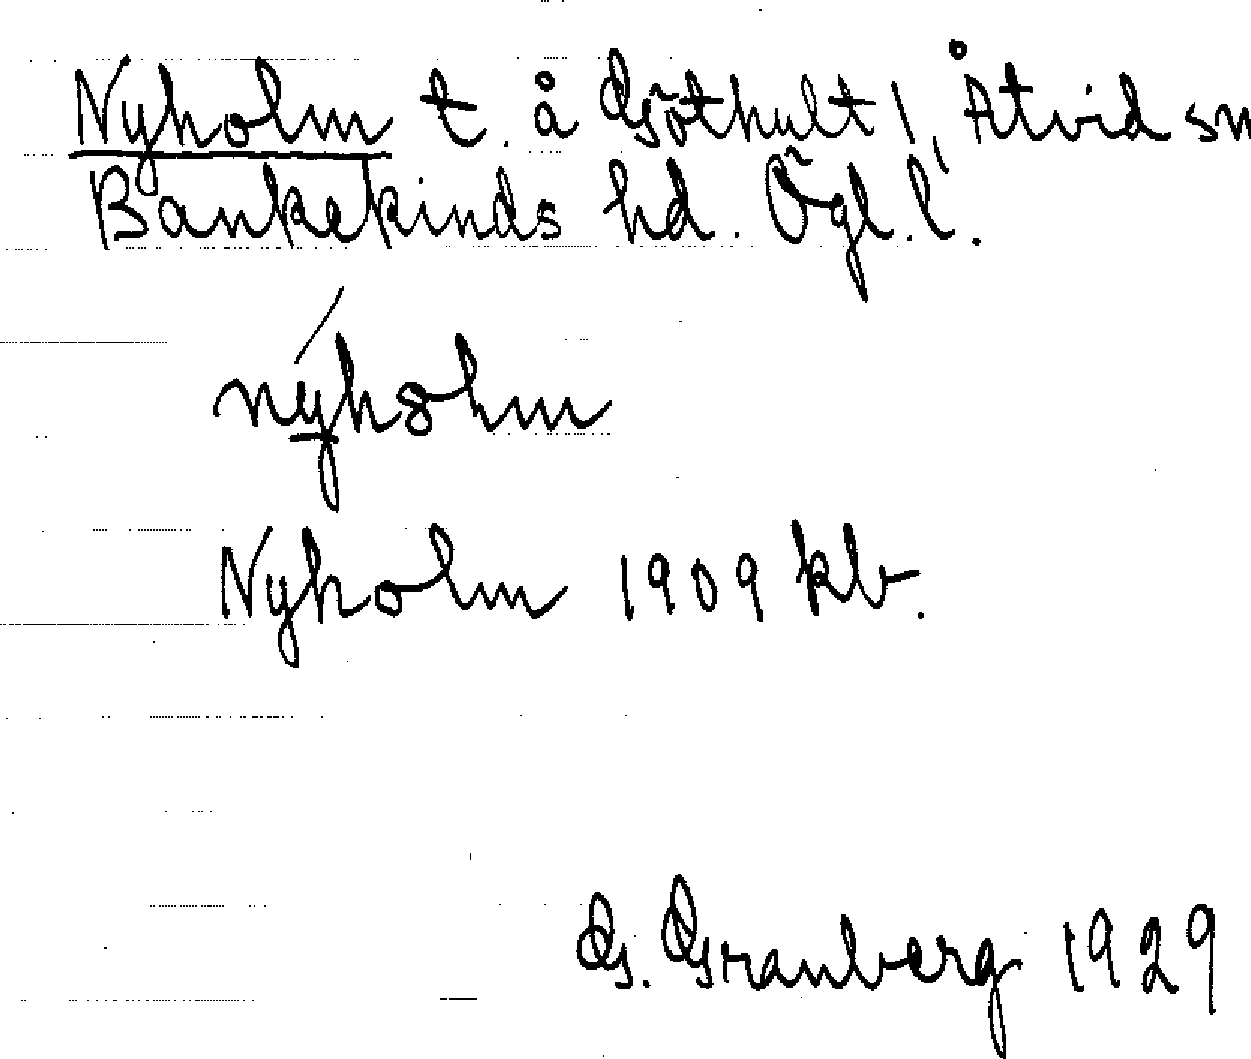 Nyholm t. å Göthult 1, Åtvid sn
Bankekinds hd. Ögl. l.
nýholm
Nyholm 1909 kb.
G. Granberg 1929